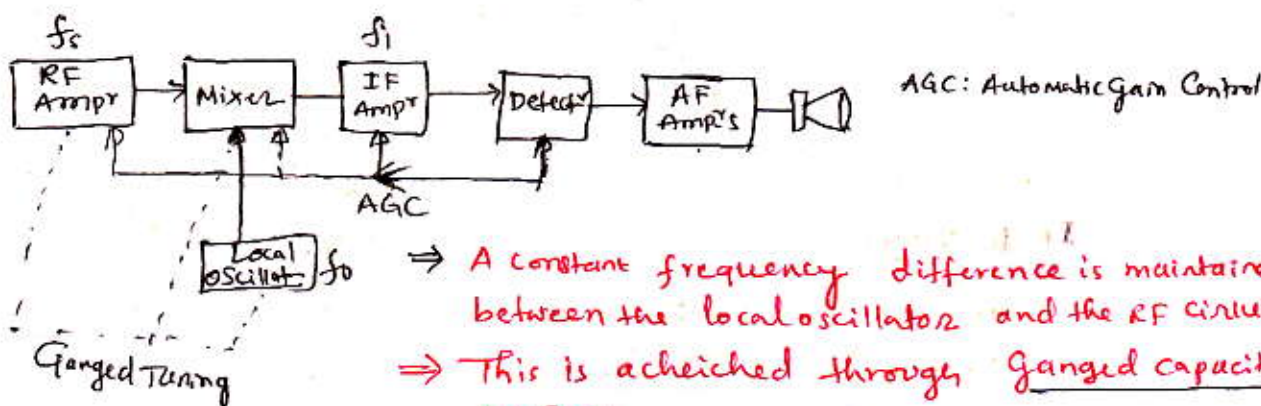 fs
fi
RF
Ampr
Mixer
IF
Ampr
Detectr
AF
Ampr's
AGC: Automatic Gain Control
AGC
Local
oscillat
fo
⇒ A constant frequency difference is maintaine
between the local oscillator and the RF cirlu
Ganged Tuning
⇒ This is acheiched through Ganged capacit